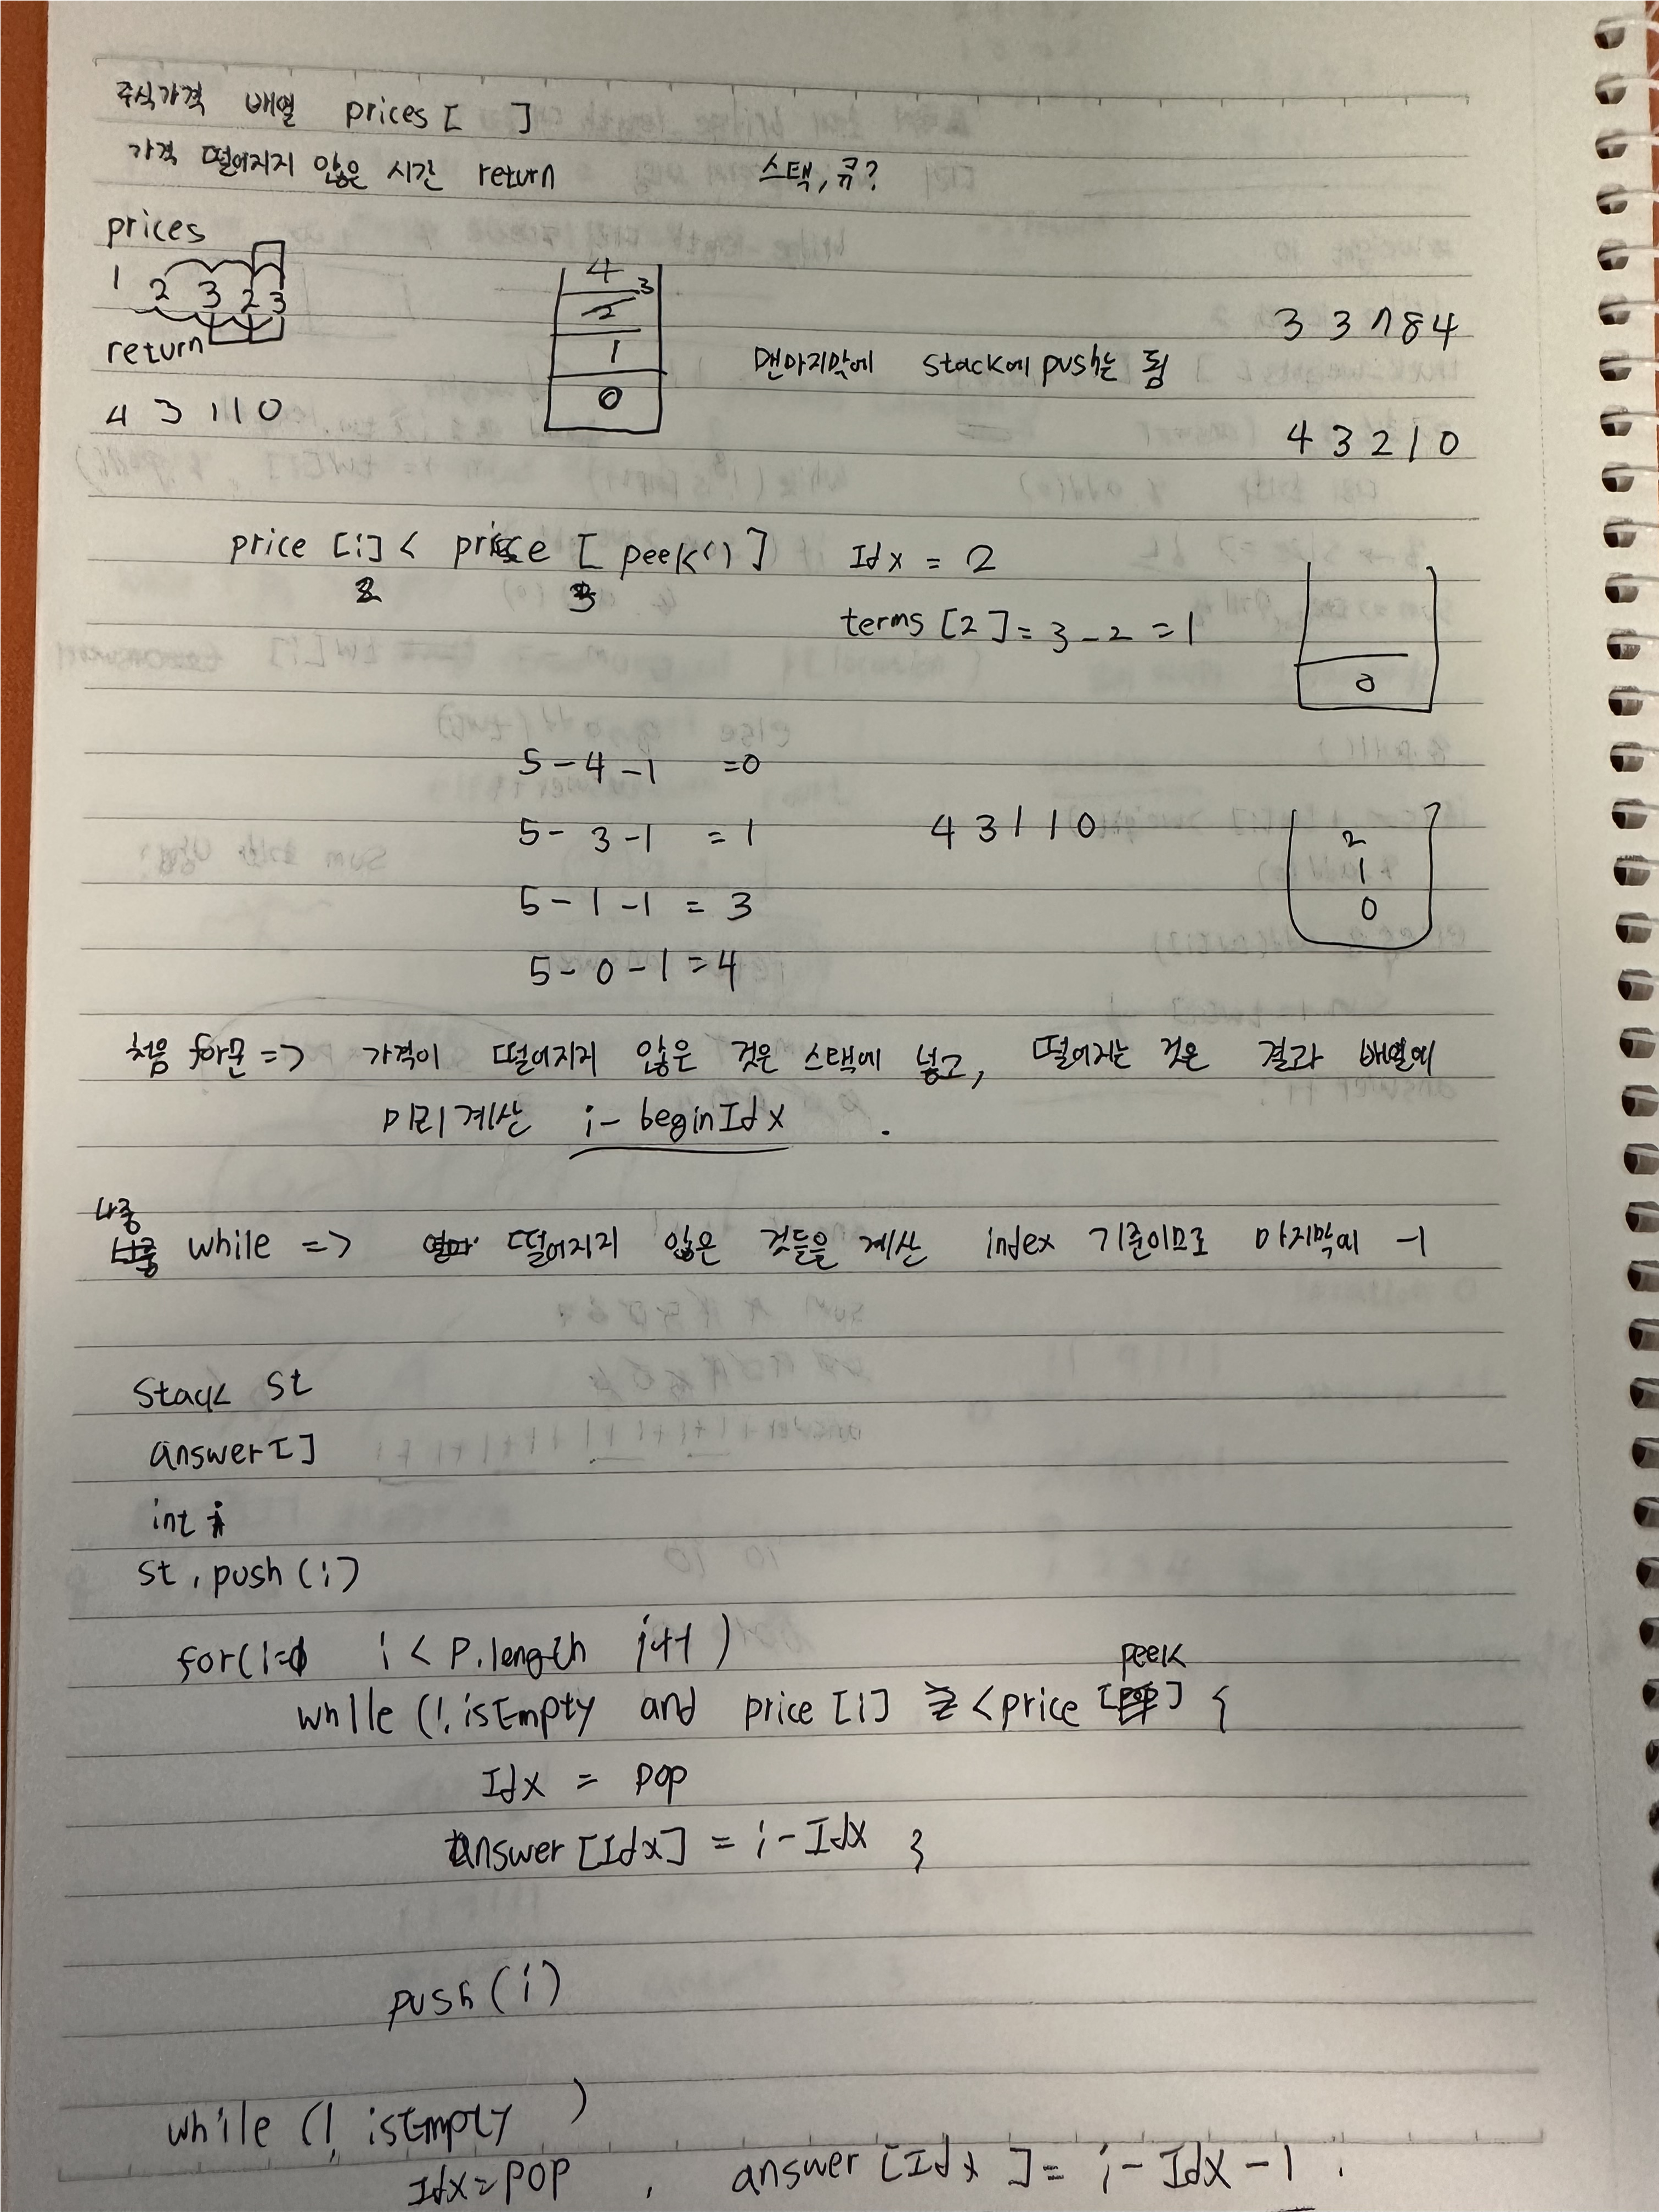 주식가격 배열 prices [ ]
가격 떨어지지 않은 시간 return 스택, 큐?
prices
1 2 3 2 3
return
4 3 1 1 0
4
3
2
1
0
맨마지막에 stack에 push는 됨
3 3 7 8 4
4 3 2 1 0
price [i] < price [ peek() ] Idx = 2
2 3
terms [2] = 3 - 2 = 1
0
5 - 4 - 1 = 0
5 - 3 - 1 = 1 4 3 1 1 0
5 - 1 - 1 = 3
5 - 0 - 1 = 4
2
1
0
처음 for문 => 가격이 떨어지지 않은 것은 스택에 넣고, 떨어지는 것은 결과 배열에
미리 계산 i - beginIdx .
나중
while => 떨어지지 않은 것들을 계산 index 기준이므로 마지막에 -1
Stack st
answer[]
int i
st.push(i)
for(i=0 i < p.length i++)
peek
while (!.isEmpty and price [i] < price [ ] {
Idx = pop
answer [Idx] = i - Idx }
push(i)
while (!.isEmpty )
Idx = pop , answer [Idx] = i - Idx - 1 ;